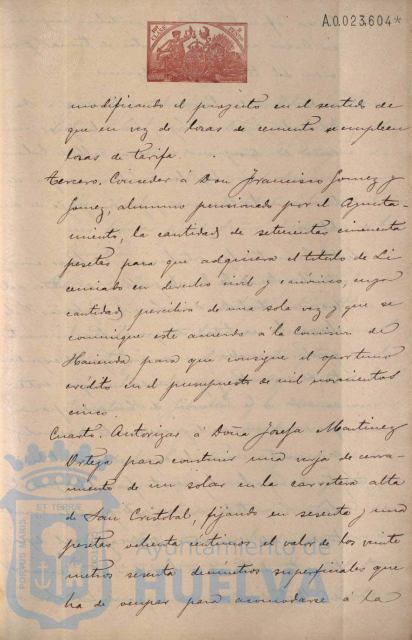 A.0.023.604*
modificando el proyecto en el sentido de
que en vez de losas de cemento se empleen
losas de tarifa.
Tercero. Conceder á Don Francisco Gomez y
Gomez, alumno pensionado por el Ayunta-
miento, la cantidad de setecientas cincuenta
pesetas para que adquiera el titulo de Li
cenciado en derecho civil y canónico, cuya
cantidad percibirá de una sola vez y que se
comunique este acuerdo á la Comision de
Hacienda para que consigne el oportuno
crédito en el presupuesto de mil novecientos
cinco.
Cuarto. Autorizar á Doña Josefa Martinez
Ortega para construir una verja de cerra-
miento de un solar en la carretera alta
de San Cristobal, fijando en sesenta y una
pesetas ochenta céntimos el valor de los veinte
metros sesenta decímetros superficiales que
ha de ocupar para acomodarse á la
PORTUS MARIS
ET TERRAE
Ayuntamiento de
HUELVA